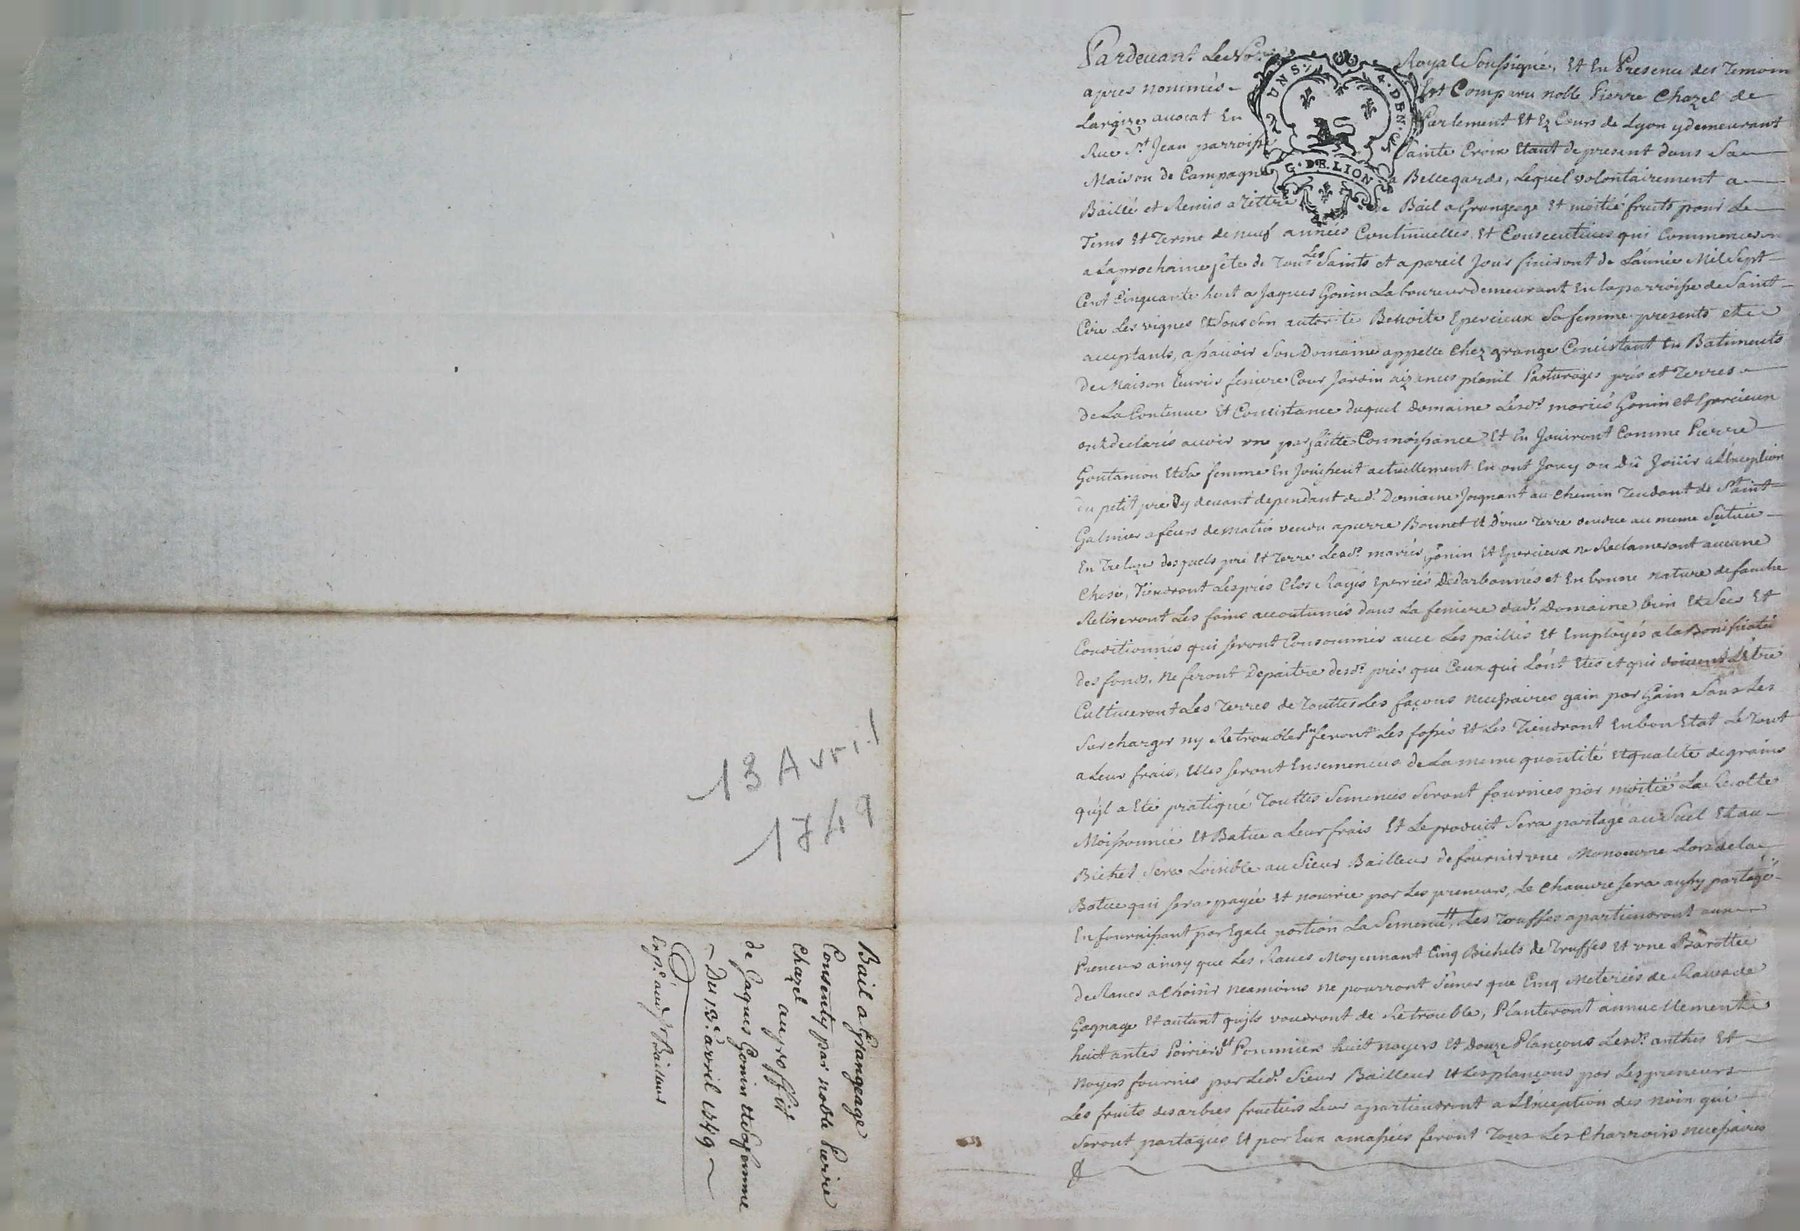 13 Avril
1749
Bail a Grangeage
Consenty par noble Pierre
Chazel au proffit
de Jaques Gonin et sa femme
Du 13.e avril 1749
Exp.e aud. s.r Bailleur
Pardevant Le No.re Royal Soussigné, Et En Presence des Temoin
apres nommés Est Comparu noble Pierre Chazel de
Largize avocat En Parlement Et Ez Cours de Lyon y demeurant
Rue S.t Jean parroisse Sainte Croix Etant de present dans Sa
Maison de Campagne a Bellegarde, Lequel volontairement a
Baillé et Remis a Tittre de Bail a Grangeage Et moitié fruits pour Le
Tems Et Terme de neuf années Continuelles Et Consecutives qui Commenceron
a La prochaine fête de Tous Les Saints et a pareil Jour finiront de L'année Mil Sept
Cent Cinquante huit a Jaques Gonin Laboureur demeurant En la parroisse de Saint
Cire Les vignes Et Sous Son autorité Benoite Epercieux Sa femme presents et
acceptants, a sçavoir Son Domaine appellé Chez grange Consistant En Batiments
de Maison Ecurie feniere Cour Jardin aizances Pasturages prés et Terres
de La Contenue Et Consistance duquel domaine Lesd.s mariés Gonin et Epercieux
ont declaré avoir une parfaitte Connoissance Et En Jouiront Comme Pierre
Goutanion Et Sa femme En Jouissent actuellement En ont Jouy ou dû Joüir a L'exception
du petit pré y devant dependant dud.t Domaine Joignant au Chemin Tendant de Saint
Galmier a feurs de matin vendu a pierre Bonnet Et d'une Terre vendue au meme Scituée
En Treluze desquels pré Et Terre Lesd.s mariés Gonin Et Epercieux ne Reclameront aucune
Chose, Tiendront Les prés Clos Rayés Eperriés Dedarbonnés et En bonne nature de fauche
Retireront Les foins accoutumés dans La feniere dud.t Domaine bien Et Sec Et
Conditionnés qui seront Consommés avec Les pailles Et Employés a la Bonification
des fonds, ne feront Depaitre desd.s prés que Ceux qui L'ont Etés et qui doivent L'être
Cultiveront Les Terres de Touttes Les façons necessaires gain par Gain Sans Les
Surcharger ny Retroubler feront Les fossés Et Les Tiendront En bon Etat Le Tout
a Leur frais, Elles seront Ensemencés de La meme quantité Et qualité de grains
qu'jl a Eté pratiqué Touttes Semences Seront fournies par moitié La Récolte
Moissonnée Et Batue a Leur frais Et Le produit Sera partagé au Suel Et au
Bichet Sera Loisible au Sieur Bailleur de fournir une Manoeuvre Lors de la
Batue qui sera payée Et nourrie par Les preneurs, Le Chanvre sera aussy partagé
En fournissant par Egale portion La Semence, Les Truffes apartiendront aux
Preneurs ainsy que Les Raves Moyennant Cinq Bichets de Truffes Et une Barottée
de Raves a Choisir neamoins ne pourront Semer que Cinq Meterées de Raves de
Gagnage Et autant qu'jls voudront de Retrouble; Planteront annuellement
huit antes Poiriers et Pommiers huit noyers Et douze Plançons Lesd.s anthes Et
Noyers fournis par Led.t Sieur Bailleur Et Les plançons par Les preneurs
Les fruits des arbres fruitiers Leur apartiendront a L'Exception des noix qui
Seront partagées Et par Eux amassées feront Tous Les Charrois necessaires